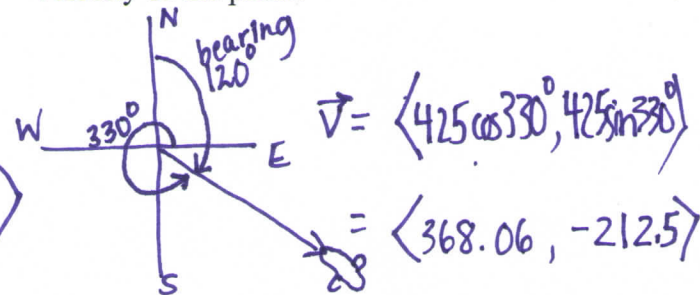 N
bearing
120°
W
330°
E
S
V⃗ = ⟨425cos330°, 425sin330°⟩
= ⟨368.06, -212.5⟩